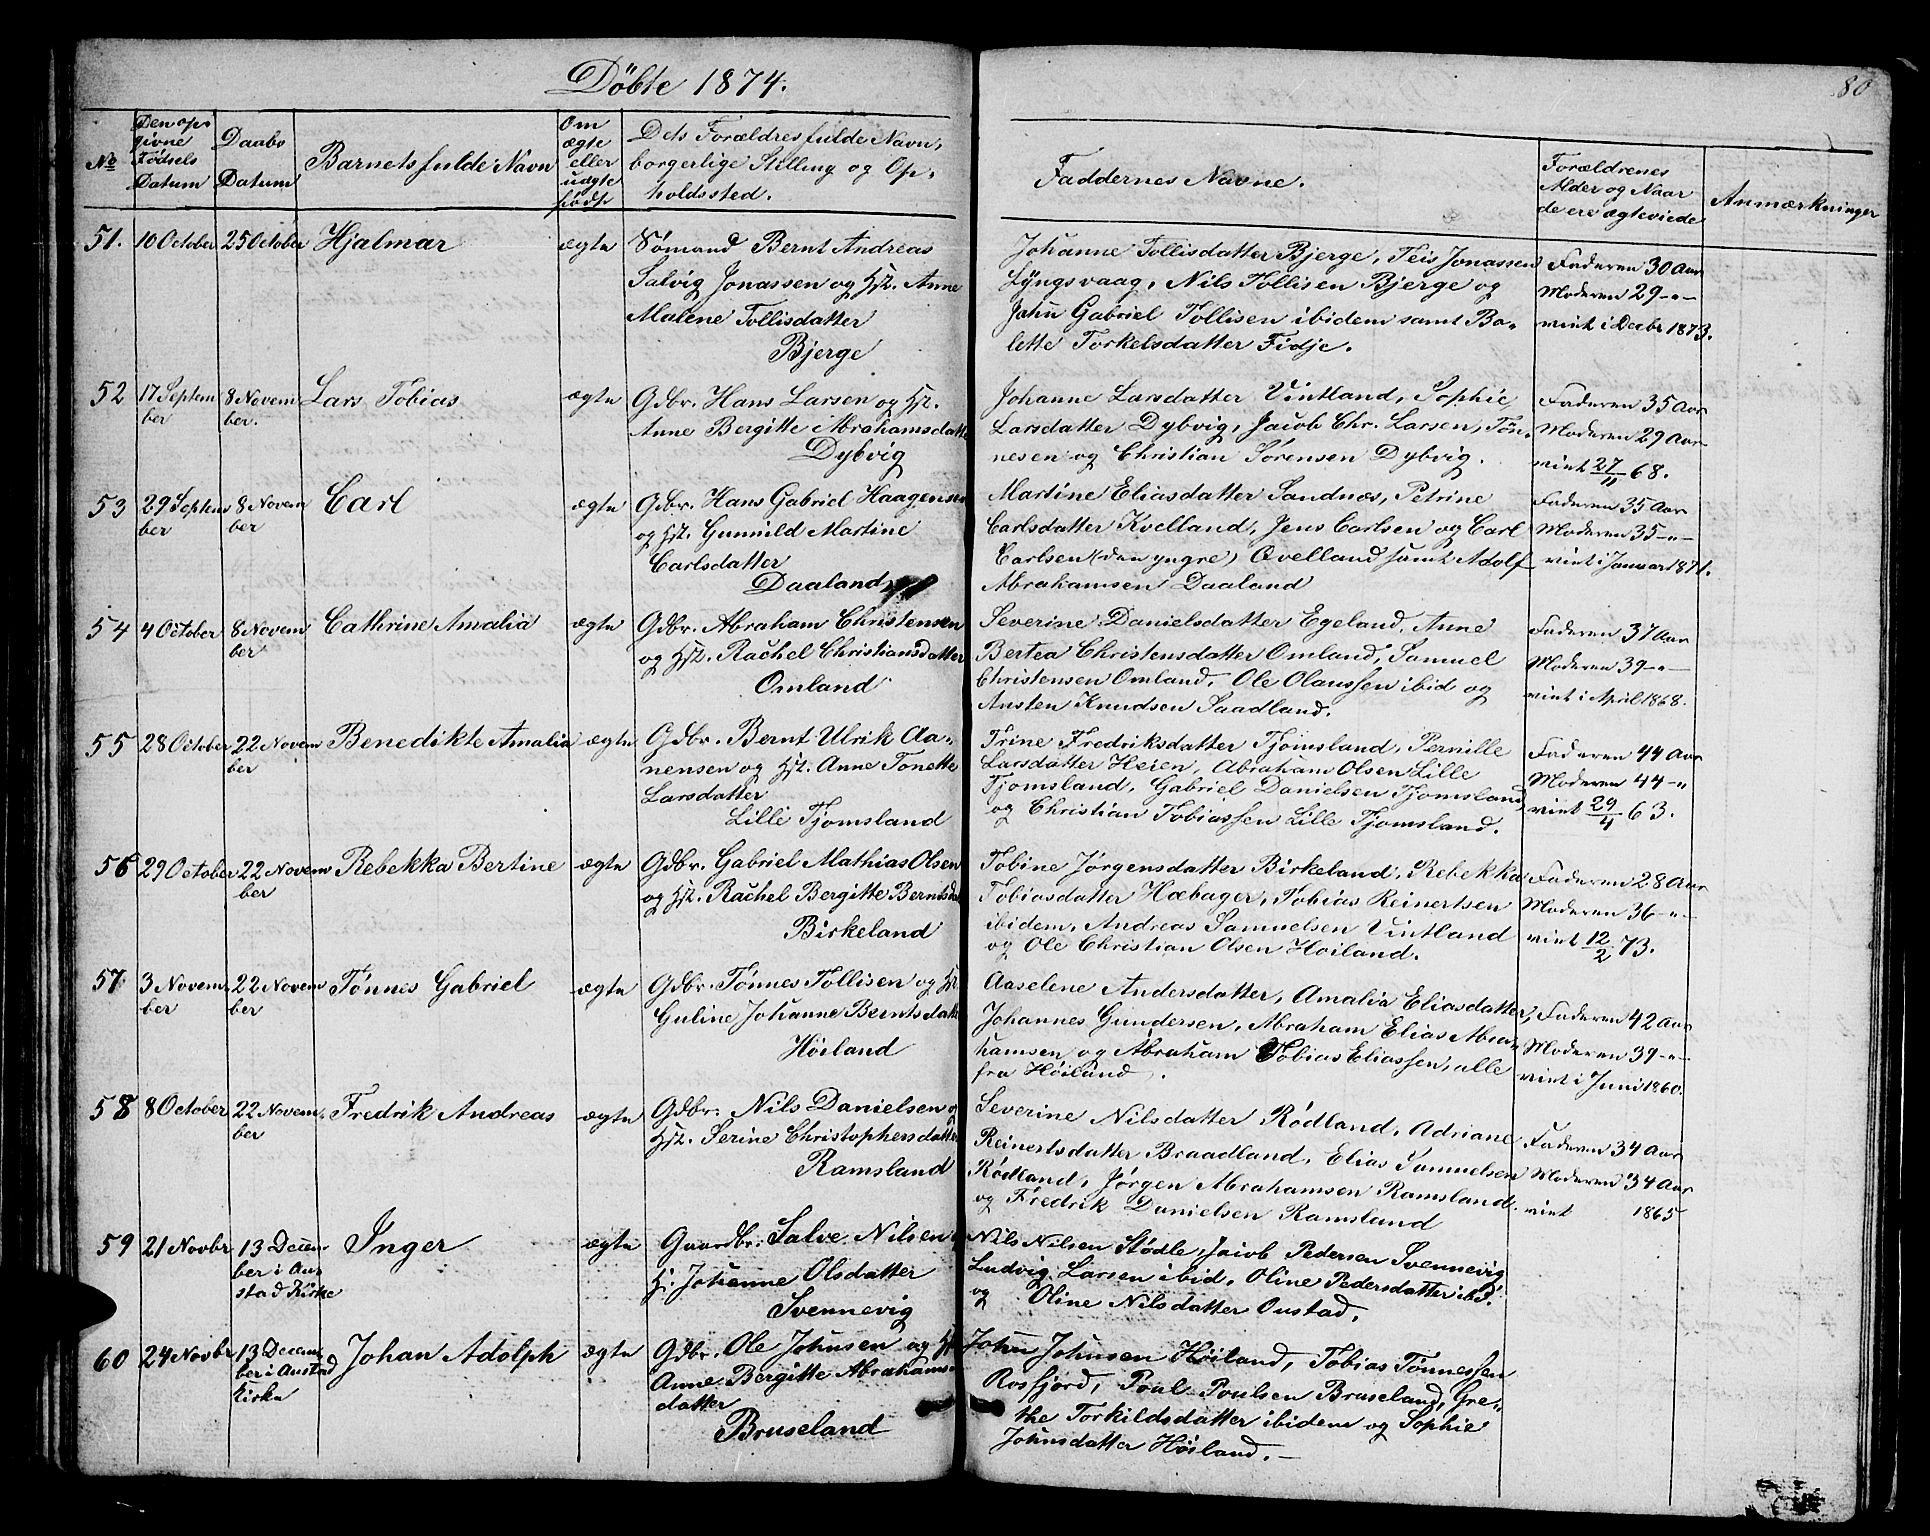 Döbte 1874.
80
No
Den op-
givne
Fødsels
Datum
Daabs
Datum
Barnets fulde Navn
Om
ægte
eller
uægte
født
Dets Forældres fulde Navn,
borgerlige Stilling og Op-
holdssted.
Faddernes Navne.
Forældrenes
Alder og Naar
de ere ægteviede
Anmærkninger
51. 10 October 25 October Hjalmar ægte
Sømand Bernt Andreas
Salvig Jonassen og Hst. Anne
Malene Tollisdatter
Bjerge
Johanne Tollisdatter Bjerge, Teis Jonassen
Lyngsvaag, Nils Tollisen Bjerge og
John Gabriel Tollisen ibidem samt Bo-
lette Torkelsdatter Fidje.
Faderen 30 Aar
Moderen 29 -"-
viet i Decbr 1873.
52 17 Septem
ber
8 Novem
ber.
Lars Tobias ægte
Gdbr. Hans Larsen og Hst.
Anne Bergitte Abrahamsdatte
Dybvig
Johanne Larsdatter Vintland, Sophie
Larsdatter Dybvig, Jacob Chr. Larsen, Tøn-
nesen og Christian Sørensen Dybvig.
Faderen 35 Aar
Moderen 29 Aar
viet 27/11 68.
53 29 Septem
ber
8 Novem
ber
Carl ægte
Gdbr. Hans Gabriel Haagensen
og Hst. Gunnild Martine
Carlsdatter
Daaland
Martine Eliasdatter Sandnæs, Petrine
Carlsdatter Kvelland, Jens Carlsen og Carl
Carlsen (den yngre) Qvelland samt Adolf
Abrahamsen Daaland
Faderen 35 Aar
Moderen 35 -"-
viet i Januar 1871.
54 4 October 8 Novem
ber
Cathrine Amalia ægte
Gdbr. Abraham Christensen
og Hst. Rachel Christiansdatter
Omland
Severine Danielsdatter Egeland, Anne
Bertea Christensdatter Omland, Samuel
Christensen Omland, Ole Olaussen ibid og
Ansten Knudsen Saadland.
Faderen 37 Aar
Moderen 39 -"-
viet i April 1868.
55 28 October 22 Novem
ber
Benedikte Amalia ægte
Gdbr. Bernt Ulrik Aa-
nensen og Hst. Anne Tonette
Larsdatter
Lille Tjomsland
Trine Fredriksdatter Tjomsland, Pernille
Larsdatter Heien, Abraham Olsen Lille
Tjomsland, Gabriel Danielsen Tjomsland,
og Christian Tobiassen Lille Tjomsland.
Faderen 44 Aar
Moderen 44 -"
viet 29/4 63.
56 29 October 22 Novem
ber
Rebekka Bertine ægte
Gdbr. Gabriel Mathias Olsen
og Hst. Rachel Bergitte Berntsda
Birkeland
Tobine Jørgensdatter Birkeland, Rebekka
Tobiasdatter Hæbager, Tobias Reinertsen
ibidem, Andreas Samuelsen Vintland
og Ole Christian Olsen Høiland.
Faderen 28 Aar
Moderen 36 -"-
viet 12/2 73.
57 3 Novem
ber
22 Novem
ber
Tønnes Gabriel ægte
Gdbr. Tønnes Tollisen og Hst.
Guline Johanne Berntsdatt
Høiland
Aaselene Andersdatter, Amalia Eliasdatter,
Johannes Gundersen, Abraham Elias Abra-
hamsen og Abraham Tobias Eliassen, alle
fra Høiland.
Faderen 42 Aar
Moderen 39 -"-
viet i Juni 1860.
58 8 October 22 Novem
ber
Fredrik Andreas ægte
Gdbr. Nils Danielsen og
Hst. Serine Christophersdatter
Ramsland
Severine Nilsdatter Rødland, Adriane
Reinertsdatter Braadland, Elias Samuelsen
Rødland, Jørgen Abrahamsen Ramsland
og Fredrik Danielsen Ramsland
Faderen 34 Aar
Moderen 34 Aar
viet 1865
59 21 Novbr 13 Decem-
ber i Au-
stad Kirke
Inger ægte
Gaardbr. Salve Nilsen
H. Johanne Olsdatter
Svennevig
Nils Nilsen Stødle, Jacob Pedersen Svennevig,
Ludvig Larsen ibid, Oline Pedersdatter ibid.
og Oline Nilsdatter Oustad.
60 24 Novbr 13 Decem
ber i Austad
Kirke
Johan Adolph ægte
Gdbr. Ole Johnsen og Hst
Anne Bergitte Abrahams-
datter
Bruseland
John Johnsen Høiland, Tobias Tønnessen
Rosfjord, Poul Poulsen Bruseland, Gre-
the Torkildsdatter ibidem og Sophie
Johnsdatter Høiland. -